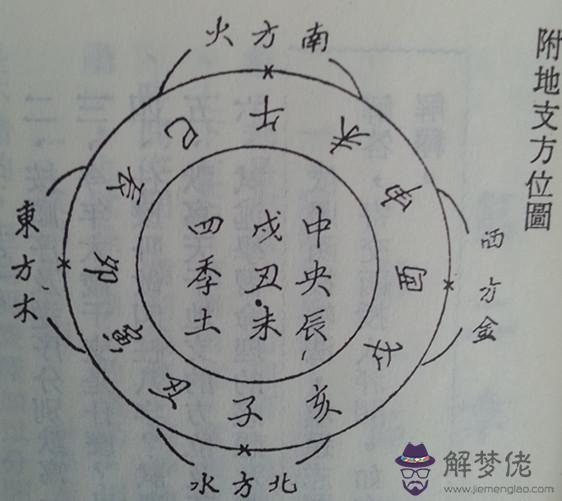 附地支方位圖
南方火
巳
午
未
辰
申
東方木
卯
中央辰、
戌丑未
四季土
酉
西方金
寅
戌
丑
子
亥
北方水
解梦佬
www.jiemenglao.com